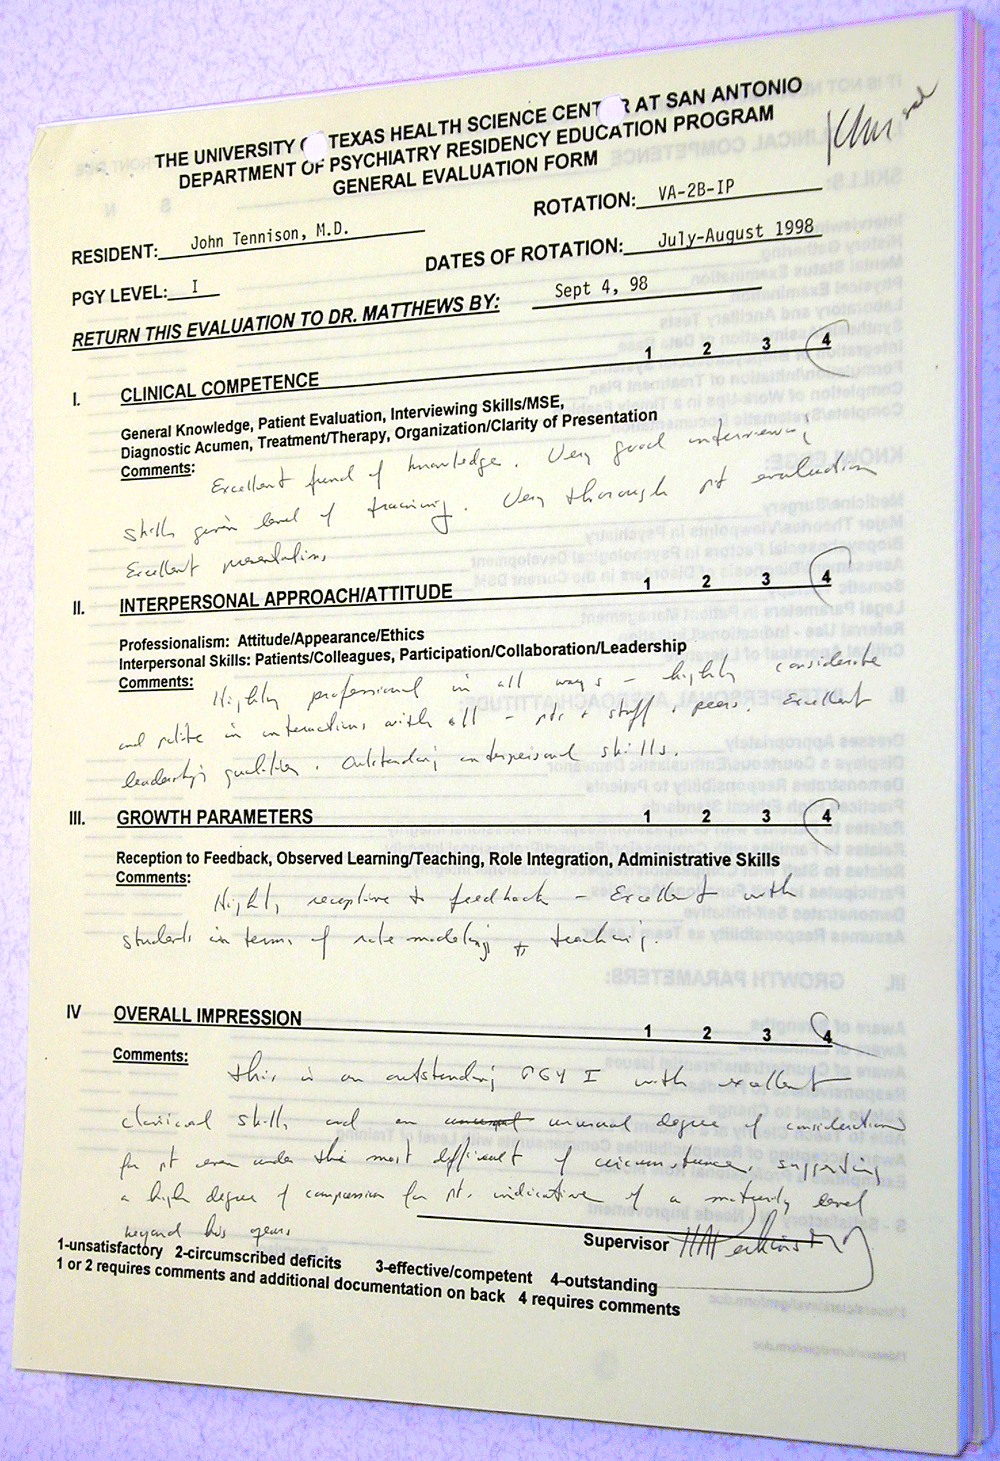 THE UNIVERSITY OF TEXAS HEALTH SCIENCE CENTER AT SAN ANTONIO
DEPARTMENT OF PSYCHIATRY RESIDENCY EDUCATION PROGRAM
GENERAL EVALUATION FORM
RESIDENT: John Tennison, M.D. ROTATION: VA-2B-IP
PGY LEVEL: I DATES OF ROTATION: July-August 1998
RETURN THIS EVALUATION TO DR. MATTHEWS BY: Sept 4, 98
I. CLINICAL COMPETENCE 1 2 3 4
General Knowledge, Patient Evaluation, Interviewing Skills/MSE,
Diagnostic Acumen, Treatment/Therapy, Organization/Clarity of Presentation
Comments: Excellent fund of knowledge. Very good interviewing
skills given level of training. Very thorough pt evaluation
Excellent presentations
II. INTERPERSONAL APPROACH/ATTITUDE 1 2 3 4
Professionalism: Attitude/Appearance/Ethics
Interpersonal Skills: Patients/Colleagues, Participation/Collaboration/Leadership
Comments: Highly professional in all ways - highly considerate
and polite in interactions with all - pts & staff & peers. Excellent
leadership qualities. Outstanding interpersonal skills.
III. GROWTH PARAMETERS 1 2 3 4
Reception to Feedback, Observed Learning/Teaching, Role Integration, Administrative Skills
Comments: Highly receptive to feedback - Excellent with
students in terms of role modeling & teaching.
IV OVERALL IMPRESSION 1 2 3 4
Comments: This is an outstanding PGY I with excellent
clinical skills and an unusual degree of consideration
for pt even under the most difficult of circumstances, suggesting
a high degree of compassion for pt. indicative of a maturity level
beyond his years
Supervisor
1-unsatisfactory 2-circumscribed deficits 3-effective/competent 4-outstanding
1 or 2 requires comments and additional documentation on back 4 requires comments